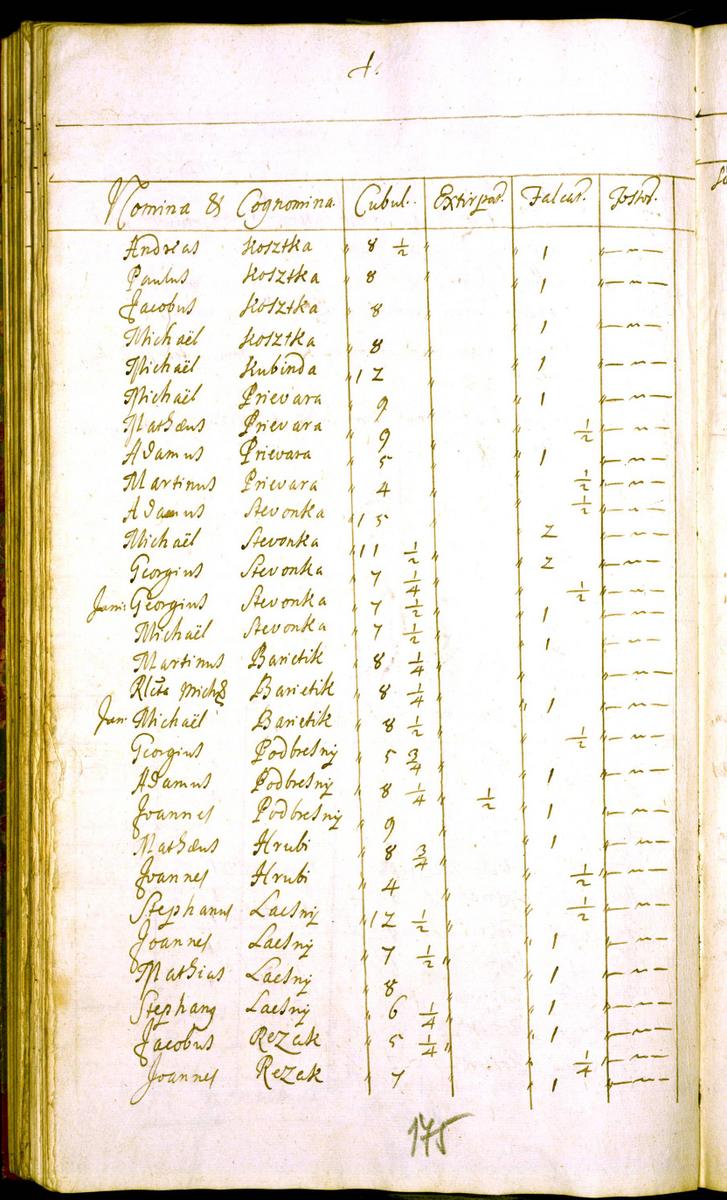 1.
Nomina & Cognomina. Cubul. Extirpat. Falcat.
Andreas Kosztka " 8 ½ " " 1 "—"—
Paulus Kosztka " 8 " " 1 "—"—
Jacobus Kosztka " 8 " " "—"—
Michaël Kosztka " 8 " " 1 "—"—
Michaël Kubinda " 12 " " 1 "—"—
Michaël Prievara " 9 " " 1 "—"—
Mathæus Prievara " 9 " " ½ "—"—
Adamus Prievara " 5 " " 1 "—"—
Martinus Prievara " 4 " " ½ "—"—
Adamus Stevonka " 15 " " ½ "—"—
Michaël Stevonka " 11 ½ " " 2 "—"—
Georgius Stevonka " 7 ¼ " " 2 "—"—
Juni: Georgius Stevonka " 7 ½ " " ½ "—"—
Michaël Stevonka " 7 ½ " " 1 "—"—
Martinus Barietik " 8 ¼ " " 1 "—"—
Rlcta Mich Barietik " 8 ¼ " " "—"—
Jun: Michaël Barietik " 8 ½ " " 1 "—"—
Georgius Podbresnÿ " 5 ¾ " " ½ "—"—
Adamus Podbresnÿ " 8 ¼ " ½ " 1 "—"—
Joannes Podbresnÿ " 9 " " 1 "—"—
Mathæus Hrubi " 8 ¾ " " 1 "—"—
Joannes Hrubi " 4 " " ½ "—"—
Stephanus Lacsnÿ " 12 ½ " " ½ "—"—
Joannes Lacsnÿ " 7 ½ " " 1 "—"—
Mathias Lacsnÿ " 8 " " 1 "—"—
Stephang Lacsnÿ " 6 ¼ " " 1 "—"—
Jacobus Rezak " 5 ¼ " " ¼ "—"—
Joannes Rezak " 7 " " 1 "—"—
175